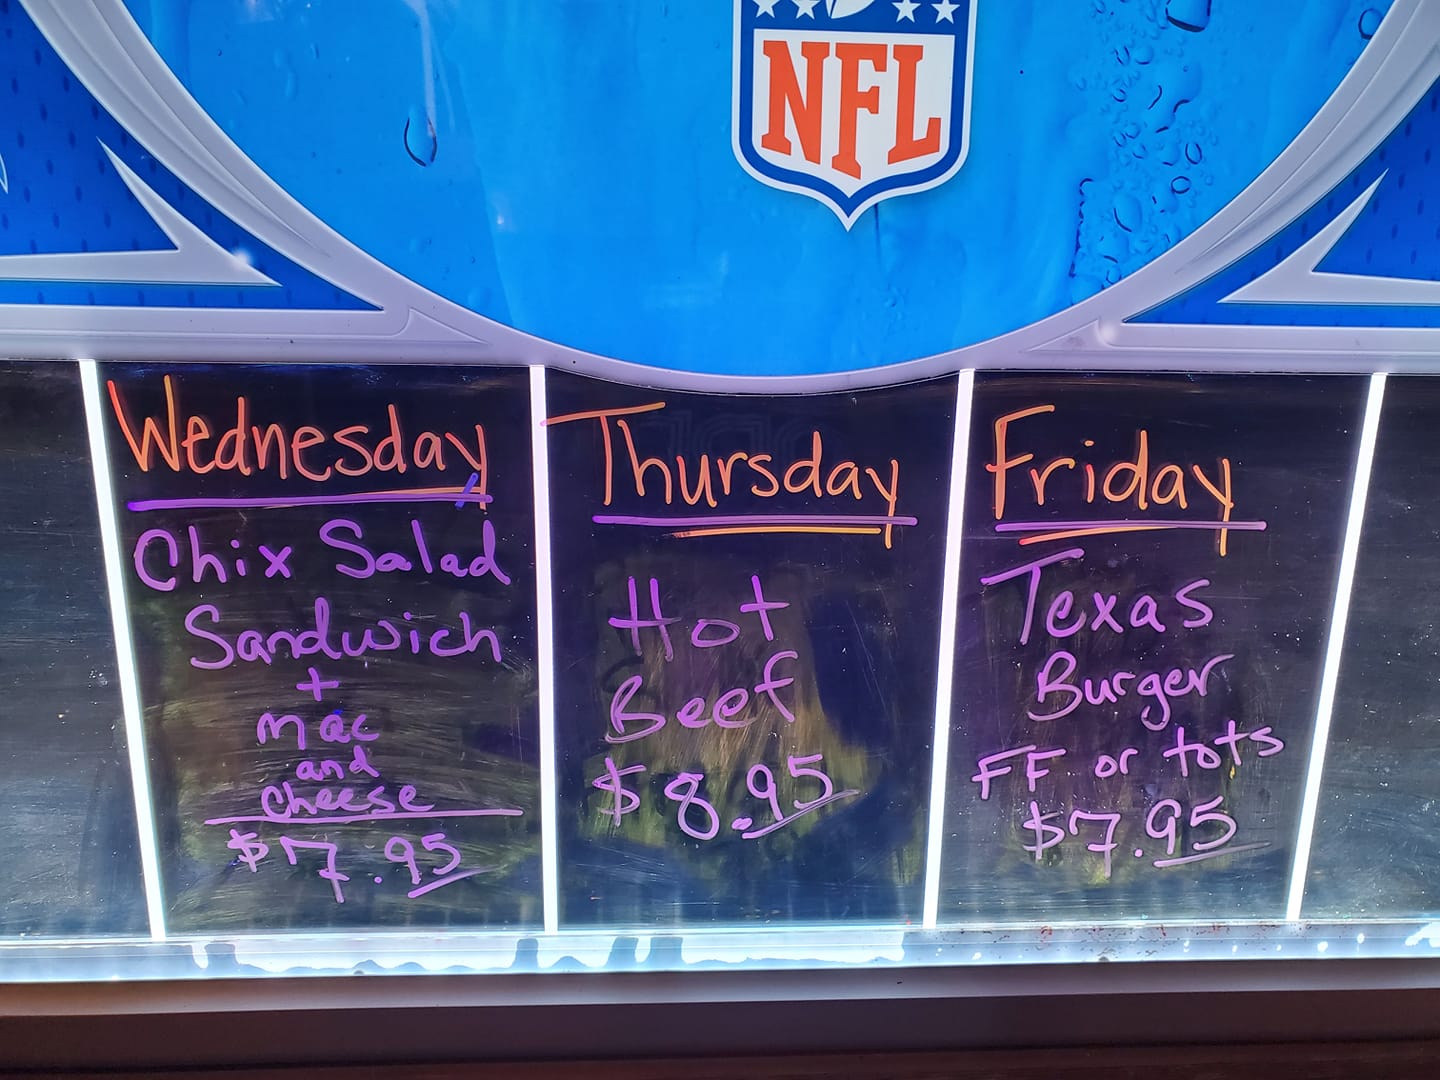 NFL
Wednesday
Chix Salad
Sandwich
+
mac
and
cheese
$7.95
Thursday
Hot
Beef
$8.95
Friday
Texas
Burger
FF or tots
$7.95